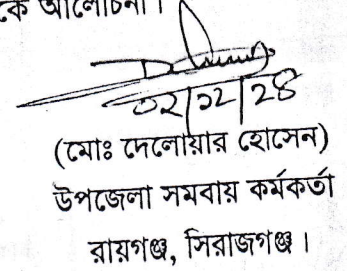 কে আলোচনা।
০২/১২/২৪
(মোঃ দেলোয়ার হোসেন)
উপজেলা সমবায় কর্মকর্তা
রায়গঞ্জ, সিরাজগঞ্জ।